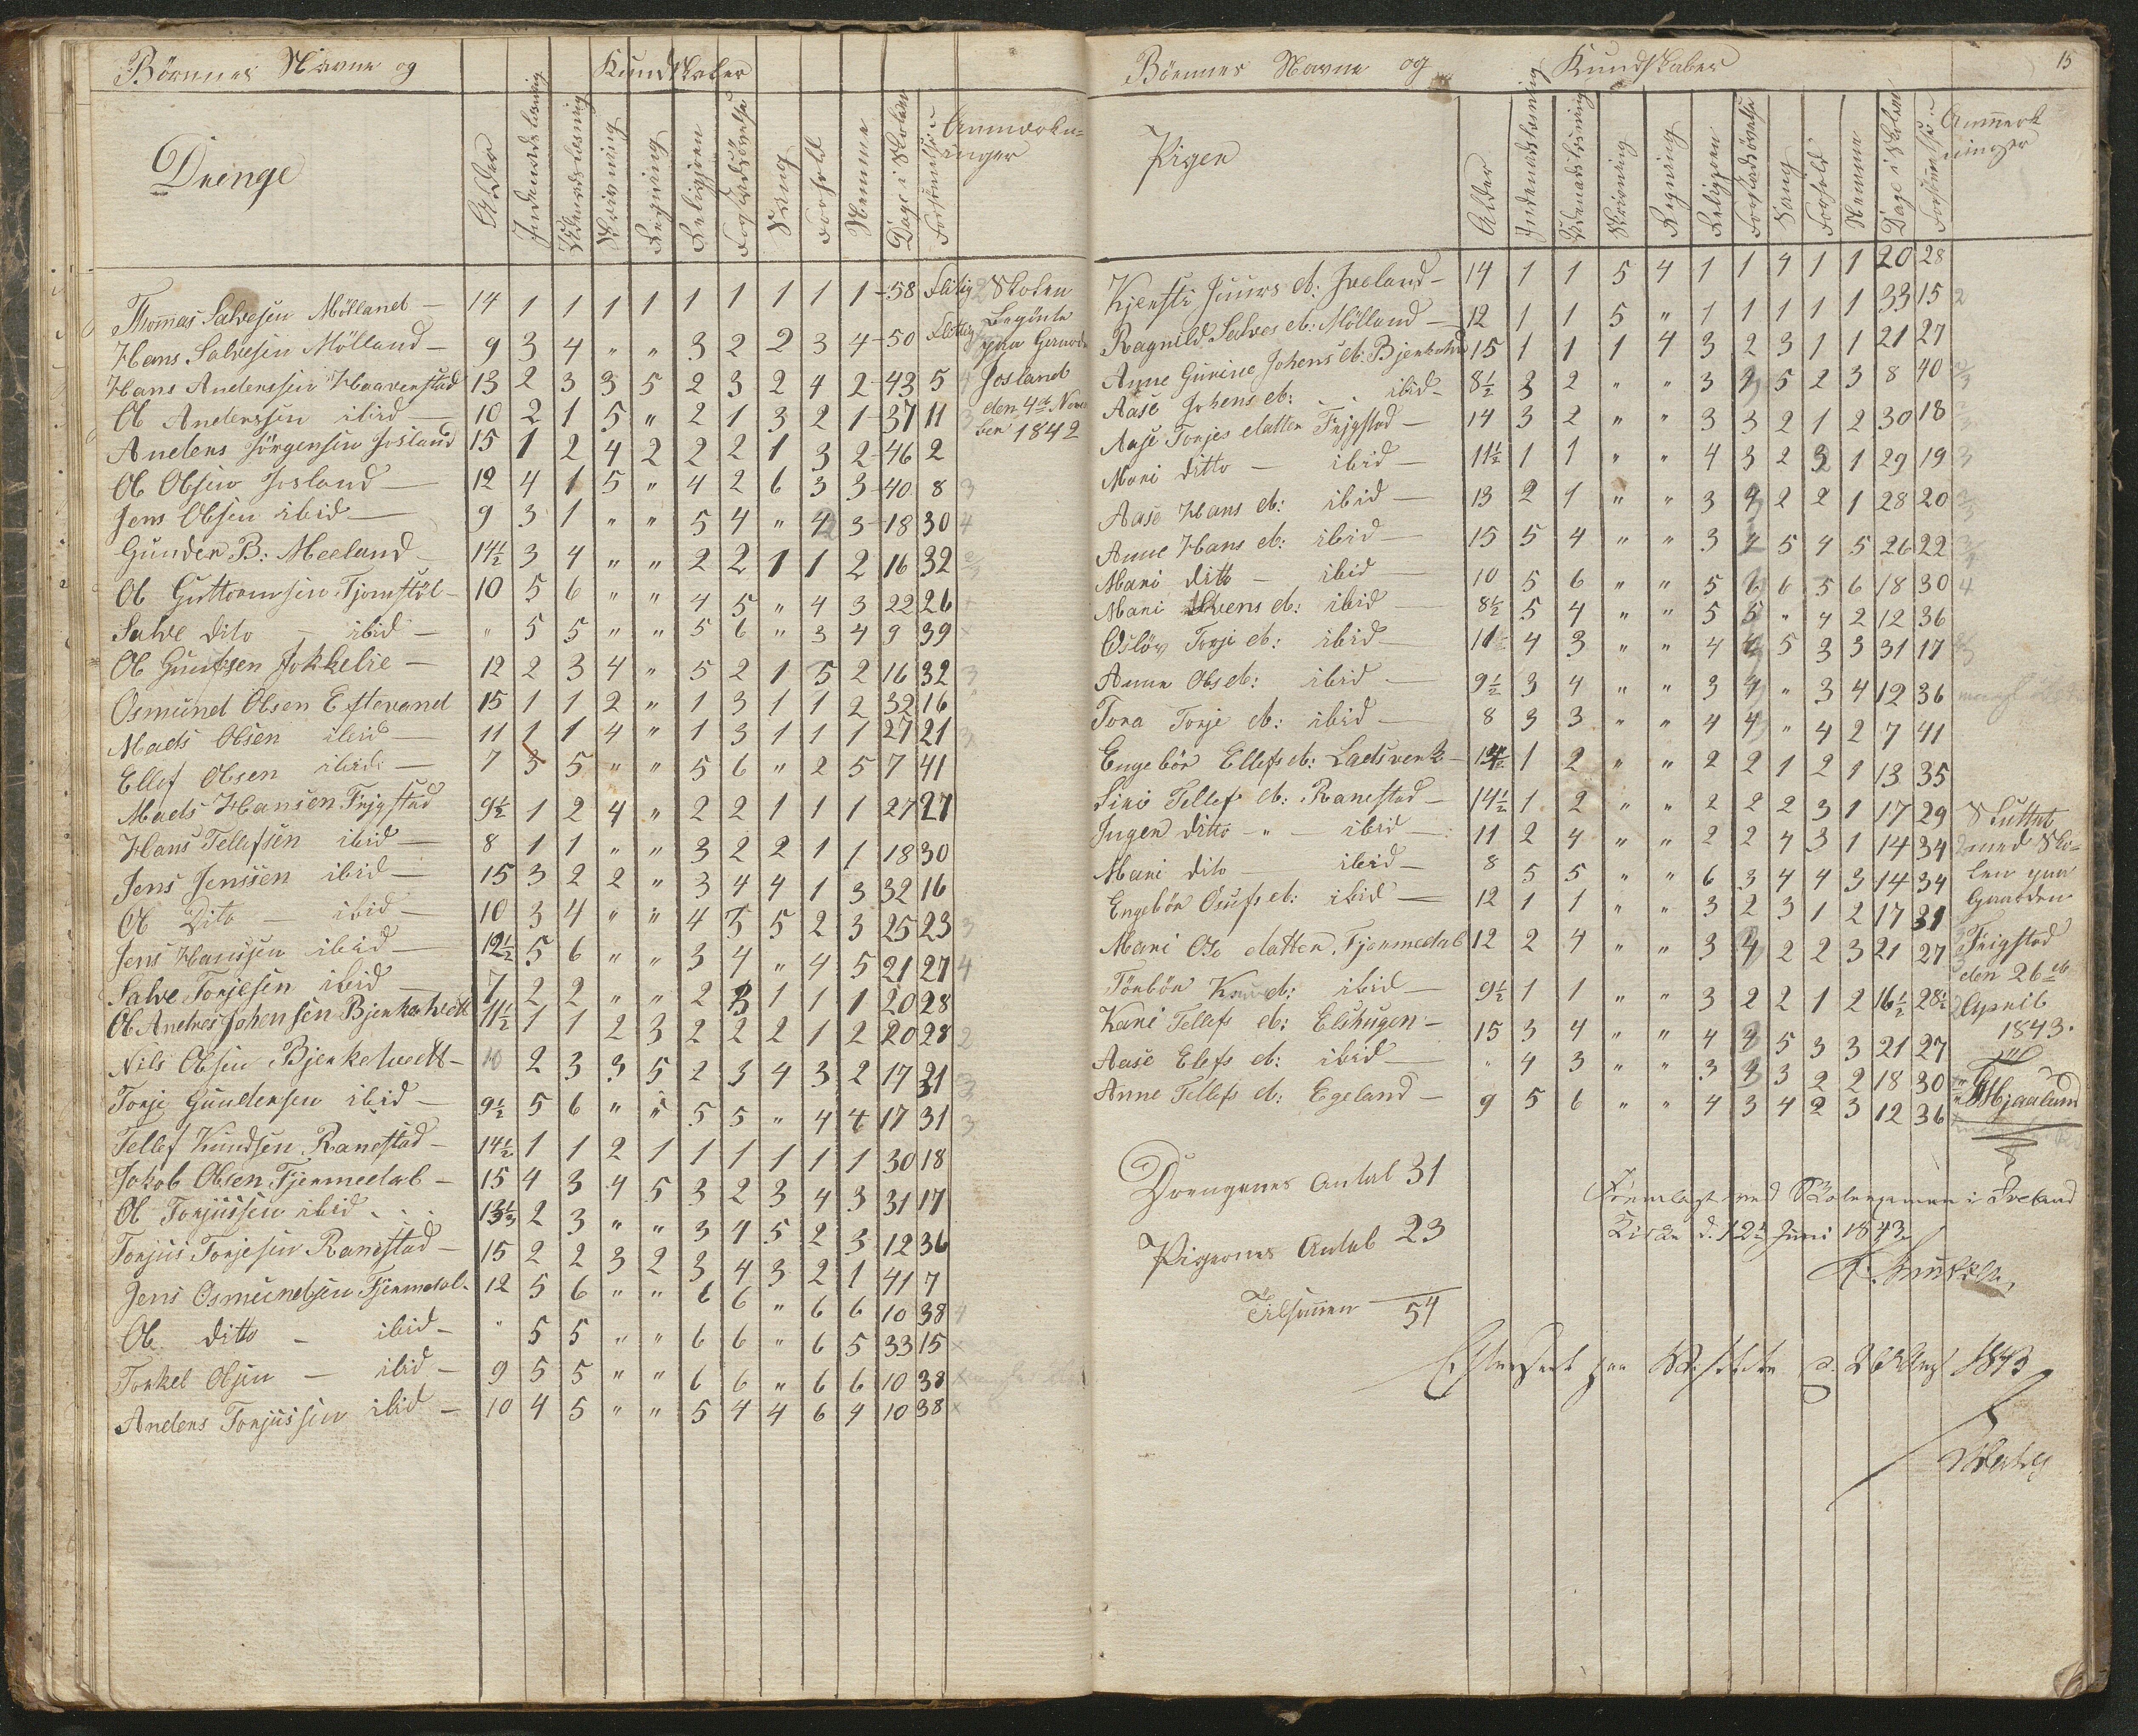 Börnenes Navne og Kundskaber
Drenge
Alder
Indenadslæsning
Udenadslæsning
Skrivning
Regning
Religjoen
Forstadsövelse
Sang
Forhold
Nemme
Dage i Skolen
Forsömmelse
Anmærkninger
Thomas Salvesen Mölland — 14 1 1 1 1 1 1 1 1 1 58 flitig
Hans Salvesen Mölland — 9 3 4 " " 3 2 2 3 4 50 flittig
Hans Anderssen Haavenstad 13 2 3 3 5 2 3 2 4 2 43 5 4
Ol Anderssen ibid — 10 2 1 5 " 2 1 3 2 1 37 11 3
Anders Jörgensen Josland 15 1 2 4 2 2 2 1 3 2 46 2
Ol Olsen Josland — 12 4 1 5 " 4 2 6 3 3 40 8 3
Jens Olsen ibid — 9 3 1 " " 5 4 " 4 3 18 30 4
Gunder B: Meeland — 14½ 3 4 " " 2 2 1 1 2 16 32
Ol Guttormsen Tjomstöl — 10 5 6 " " 4 5 " 4 3 22 26
Salve dito — ibid — " 5 5 " " 5 6 " 3 4 9 39
Ol Guntsen Jokkelie — 12 2 3 4 " 5 2 1 5 2 16 32 3
Osmund Olsen Eftevand 15 1 1 2 " 1 3 1 1 2 32 16
Mads Olsen ibid — 11 1 1 4 " 1 3 1 1 1 27 21 3
Ellef Olsen ibid — 7 3 5 " " 5 6 " 2 5 7 41
Mads Hansen Frigstad 9½ 1 2 4 " 2 2 1 1 1 27 21
Hans Tellefsen ibid — 8 1 1 " " 3 2 2 1 1 18 30
Jens Jenssen ibid — 15 3 2 2 " 3 4 4 1 3 32 16
Ol Dito — ibid — 10 3 4 " " 4 5 5 2 3 25 23 3
Jens Hanssen ibid — 12½ 5 6 " " 3 4 " 4 5 21 27 4
Salve Torjesen ibid — 7 2 2 " " 2 3 1 1 1 20 28
Ol Andres Johensen Bjerkehvett 11½ 1 1 2 3 2 2 2 1 2 20 28 2
Nils Olsen Bjerkehvett — 10 2 3 3 5 2 3 4 3 2 17 31 3
Torje Gundersen ibid — 9½ 5 6 " " 5 5 " 4 4 17 31 3
Tellef Knudsen Ranestad — 14½ 1 1 2 1 1 1 1 1 1 30 18
Jokob Olsen Fjermedal — 15 4 3 4 5 3 2 3 4 3 31 17
Ol Torjussen ibid 13½ 2 3 " " 3 4 5 2 3 12 36
Torjus Torjesen Ranestad — 15 2 2 3 2 3 4 3 2 1 41 7
Jens Osmundsen Fjermedal — 12 5 6 " " 6 6 " 6 6 10 38 4
Ol ditto — ibid — " 5 5 " " 6 6 " 6 5 33 15 x
Torkel Olsen — ibid — 9 5 5 " " 6 6 " 6 6 10 38 x
Anders Torjussen ibid — 10 4 5 " " 5 4 4 6 4 10 38 x
Skolen
Begönte
paa Gaarden
Josland
den 4de Novem
ber 1842
15
Börnnes Navne og Kundskaber
Pigen
Alder
Indenadslæsning
Udenadslæsning
Skrivning
Regning
Religjoen
Forstadsövelse
Sang
Forhold
Nemme
Dage i Skolen
Forsömmelse
Anmerkninger
Kjersti Juurs d: Iveland — 14 1 1 5 4 1 1 4 1 1 20 28
Ragnild Salves d: Mölland — 12 1 1 5 " 1 1 1 1 1 33 15 2
Anne Gurine Johens d: Bjerkehvett 15 1 1 1 4 3 2 3 1 1 21 27
Aase Johens d: ibid — 8½ 3 2 " " 3 3 5 2 3 8 40
Aase Torjes datter Frigstad — 14 3 2 " " 3 3 2 1 2 30 18
Mari ditto — ibid — 11½ 1 1 " " 4 3 2 3 1 29 19 3
Aase Hans d: ibid — 13 2 1 " " 3 4 2 2 1 28 20
Anne Hans d: ibid — 15 5 4 " " 3 4 5 4 5 26 22
Mari ditto — ibid — 10 5 6 " " 5 6 6 5 6 18 30 4
Mari Svens d: ibid — 8½ 5 4 " " 5 5 " 4 2 12 36
Oslöv Torje d: ibid — 11½ 4 3 " " 4 4 5 3 3 31 17
Anne Ols d: ibid — 9½ 3 4 " " 3 4 " 3 4 12 36
Tora Torje d: ibid — 8 3 3 " " 4 4 " 4 2 7 41
Engebör Ellefs d: Ladsverk — 14 1 2 " " 2 2 1 2 1 13 35
Siri Tellef d: Ranestad — 14½ 1 2 " " 2 2 2 3 1 17 29
Ingen ditto — ibid — 11 2 4 " " 2 2 4 3 1 14 34
Mari dito — ibid — 8 5 5 " " 6 3 4 4 3 14 34
Engebör Osufs d: ibid — 12 1 1 " " 3 2 3 1 2 17 31
Mari Ols datter Fjermedal 12 2 4 " " 3 4 2 2 3 21 27
Tönbör Knud d: ibid — 9½ 1 1 " " 3 2 2 1 2 16½ 28½
Kari Tellefs d: Elshugen — 15 3 4 " " 4 4 5 3 3 21 27
Aase Elefs d: ibid — " 4 3 " " 3 4 3 2 2 18 30
Anne Tellefs d: Egeland — 9 5 6 " " 4 3 4 2 3 12 36
Sluttet
med Sko-
len paa
Gaarden
Frigstad
den 26de
April
1843.
Drengenes Antal 31
Pigernes Antal 23
Tilsammen 54
Fremlagt ved Skoleexamen i Iveland
Kirke d. 12te Juni 1843
Efterseet paa Visitats d. 26 Aug 1843